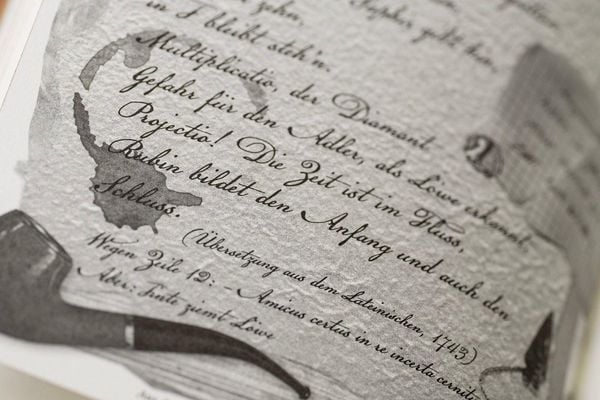 zehn,
Saphir, geht hin,
in F bleibt steh'n.
Multiplicatio, der Diamant
Gefahr für den Adler, als Löwe erkannt,
Projectio! Die Zeit ist im Fluss,
Rubin bildet den Anfang und auch den
Schluss.
(Übersetzung aus dem Lateinischen, 1743)
Wegen Zeile 12: - Amicus certus in re incerta cernitur
Aber: Tinte ziemt Löwe